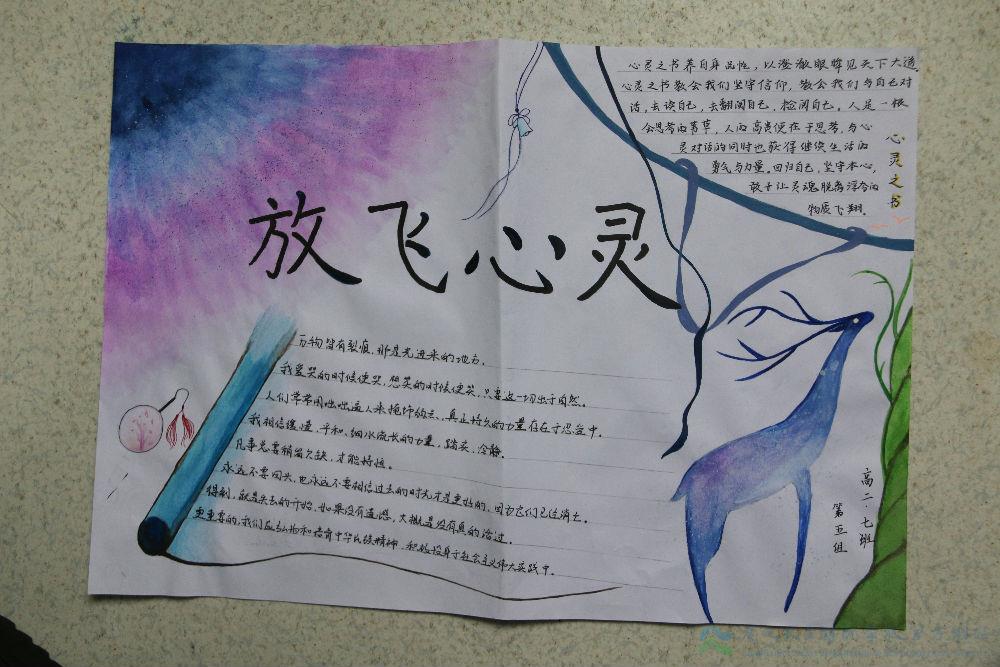 放飞心灵
心灵之书养自身品性，以澄澈眼眸见天下大道，
心灵之书教会我们坚守信仰，教会我们与自己对
话，去读自己，去翻阅自己，检阅自己。人是一根
会思考的苇草，人的高贵便在于思考，与心
灵对话的同时也获得继续生活的
勇气与力量。回归自己，坚守本心，
敢于让灵魂脱离浮夸的
物质飞翔。
心灵之书
万物皆有裂痕，那是光进来的地方。
我爱哭的时候便哭，想笑的时候便笑，只要这一切出于自然。
人们常常用咄咄逼人来掩饰的，真正持久的力量存在于忍受中。
我相信缓慢，平和，细水流长的力量，踏实，冷静。
凡事总要稍留欠缺，才能持恒。
永远不要回头，也永远不要相信过去的时光才是更好的，因为它们已经消亡。
得到，就是失去的开始，如果没有遗憾，大概是没有真的活过。
更重要的，我们应弘扬和培育中华民族精神，积极投身于社会主义伟大实践中。
高二·七班
第五组